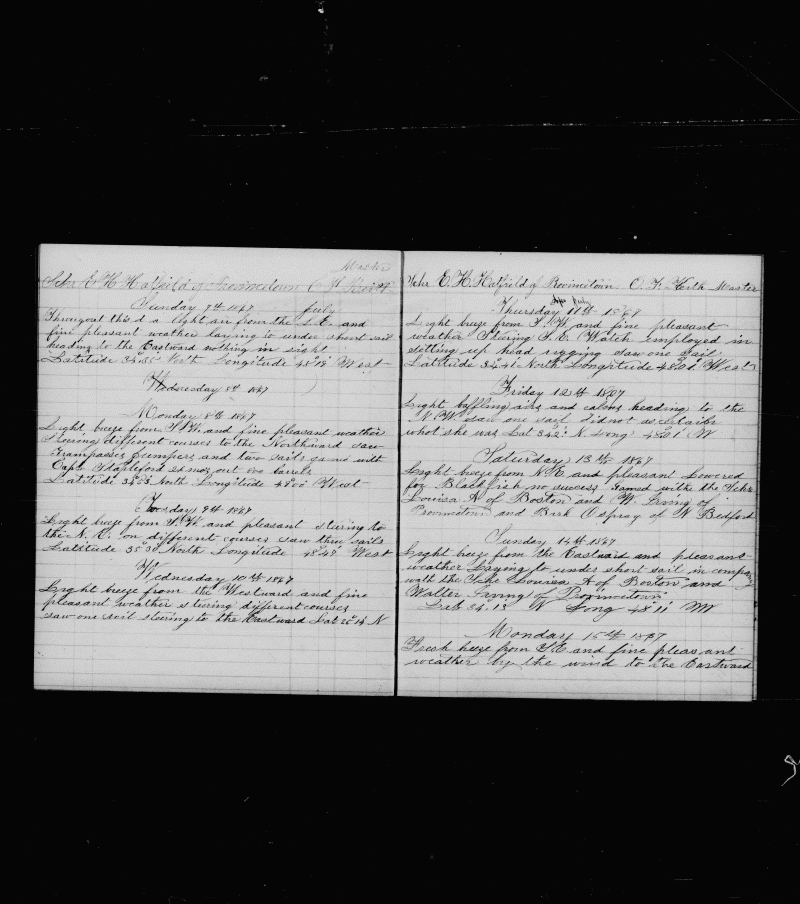 Master
Schr E H Hatfeild of Provincetown
Sunday 7th 1867 July
Througoat this d a light air from the S.E. and
fine pleasant weather laying to under short sail
heading to the Eastward nothing in sight
Latitude North Longitude 48°18 West
Wednesday 8th 1867
Monday 8th 1867
Light breeze from S.W. and fine pleasant weather
stering different courses to the Northward saw
Grampasses jumpers and two sails gamed with
Capt Stapleford 28 mos out barrels
Latitude North Longitude 48°00 West
Tuesday 9th 1867
Light breeze from S.W. and pleasant steering to
the N.E. on different courses saw three sails
Latitude 35°30 North Longitude 48°49 West
Wednesday 10th 1867
Light breeze from the Westward and fine
pleasant weather stering dyferent courses
saw one sail stering to the Eastward Lat 35°14 N
Schr E. H. Hatfeild of Provincetown Master
July
Thursday 11th
Light breeze from S.W. and fine pleasant
weather Stering S.E. Watch employed in
setting up head rigging saw one sail
Latitude North Longitude 48°01 West
Friday 12th 1867
Light baffling airs and calms heading to the
N.W. saw one sail did not
what she was Lat 34 N Long 48 01 W
Saturday 13th 1867
Light breeze from N.E. and pleasant Lowered
for Blackfish no success Gamed with the Schr
Louisa A of Boston and W. Irving of
Provincetown and Bark Ospray of N Bedford
Sunday 14th 1867
Light breeze from the Eastward and pleasant
weather Laying to under short sail in company
with the Schr Louisa A of Boston and
Walter Irving of Provincetown
Lat 34.13 N Long 48°11 W
Monday 15th 1867
Fresh breeze from S.E and fine pleasant
weather by the wind to the Eastward